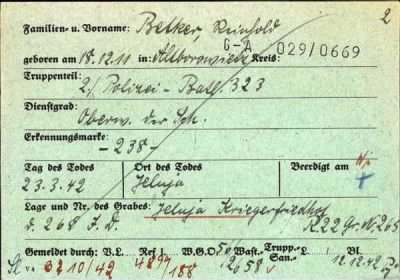 2
Familien- u. Vorname: Betker, Reinhold
G-A 029/0669
geboren am 18.12.11 in: Altborowiedz Kreis:
Truppenteil:
2./ Polizei-Batl. 323
Dienstgrad:
Oberw. der Sch.
Erkennungsmarke:
-238-
Tag des Todes Ort des Todes Beerdigt am
23.3.42 Jeluja
Lage und Nr. des Grabes: Jeluja Kriegerfriedhof
d. 268 J.D. R 22 Gr. N. 265
Gemeldet durch: V.L. Ref. W.G.O. Wast.- Trupp.- San.- L. Bl.
3210/42 4897/188 2658 12.12.42